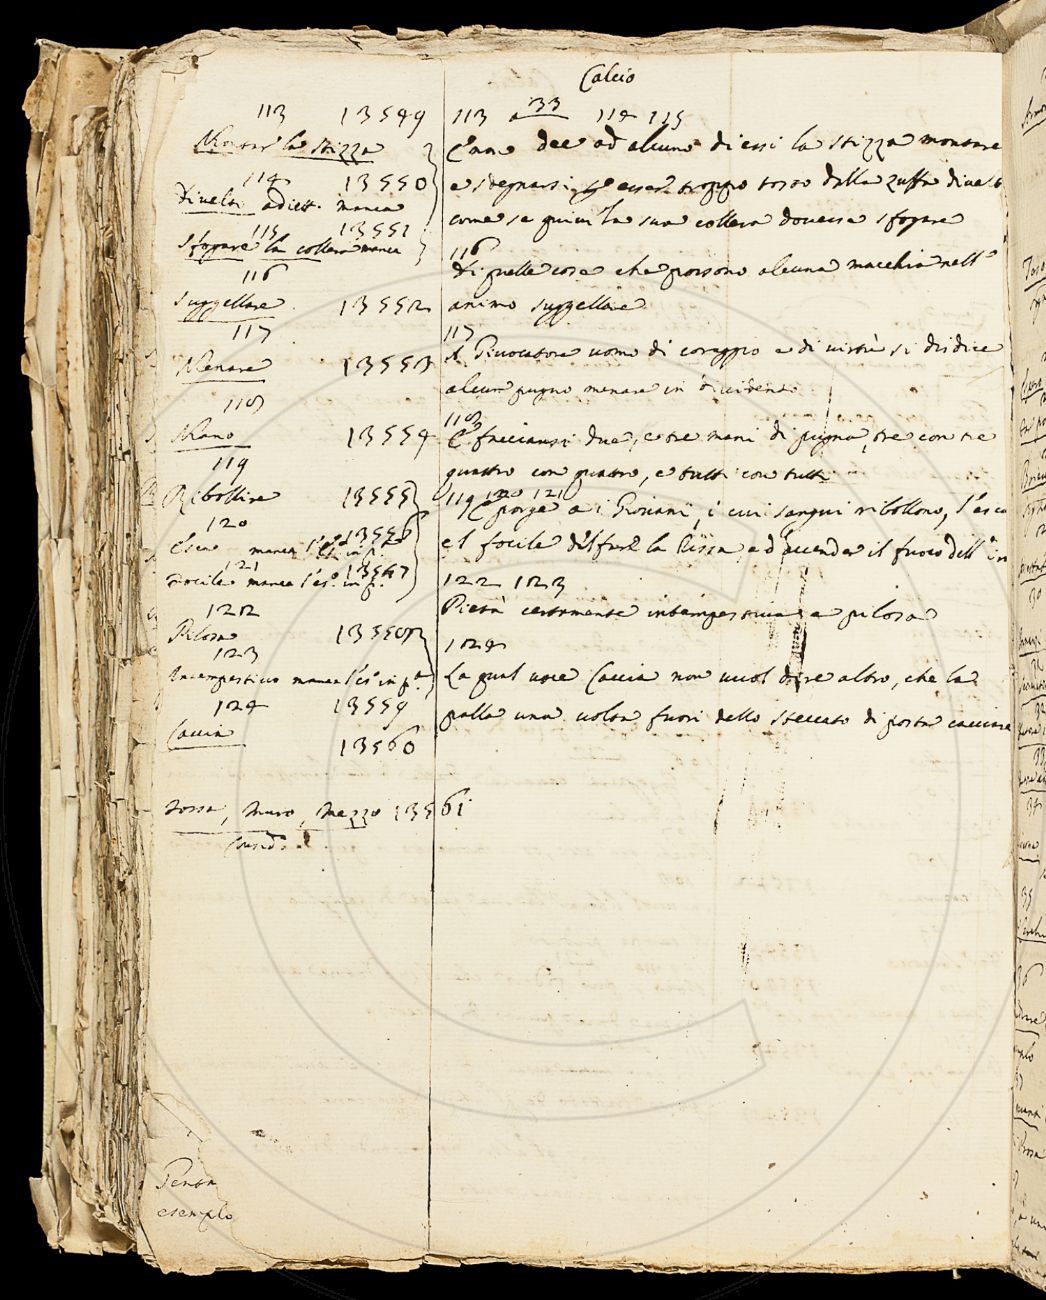 Calcio
113 13549
Montar la stizza
114 13550
Divelti adiett. manca
115 13551
Sfogare la collera manca
116
Suggellare 13552
117
Menare 13553
118
Mano 13554
119
Ribollire 13555
120 13556
Esca manca l'es° in
121 13557
Focile manca l'es° in
122
Pilosa 13558
123
Intempestivo manca l'es° in
124 13559
Caccia
13560
Fossa, Muro, Mezzo 13561
Penta
esempio
113 33 114 115
dee ad alcuno di essi la stizza montare
e sdegnarsi esser troppo tosto dalla zuffa divelti
come se quivi la sua collera dovesse sfogare
116
Di quelle cose che possono alcuna macchia nell'
animo suggellare
117
Il Provocatore uomo di coraggio e di virtù si disdice
alcun pugno menare in
118
E facciansi due, e tre mani di pugna, tre con tre
quattro con quattro, e tutti con tutti
119 120 121
porge a i Giovani, i cui sangui ribollono, l'esca
e 'l focile di far la Rissa, e d'accender il fuoco dell'
122 123
Pietà certamente intempestiva e pilosa
124
La qual voce Caccia non vuol dire altro, che la
palla una volta fuori dello steccato di posta cacciare